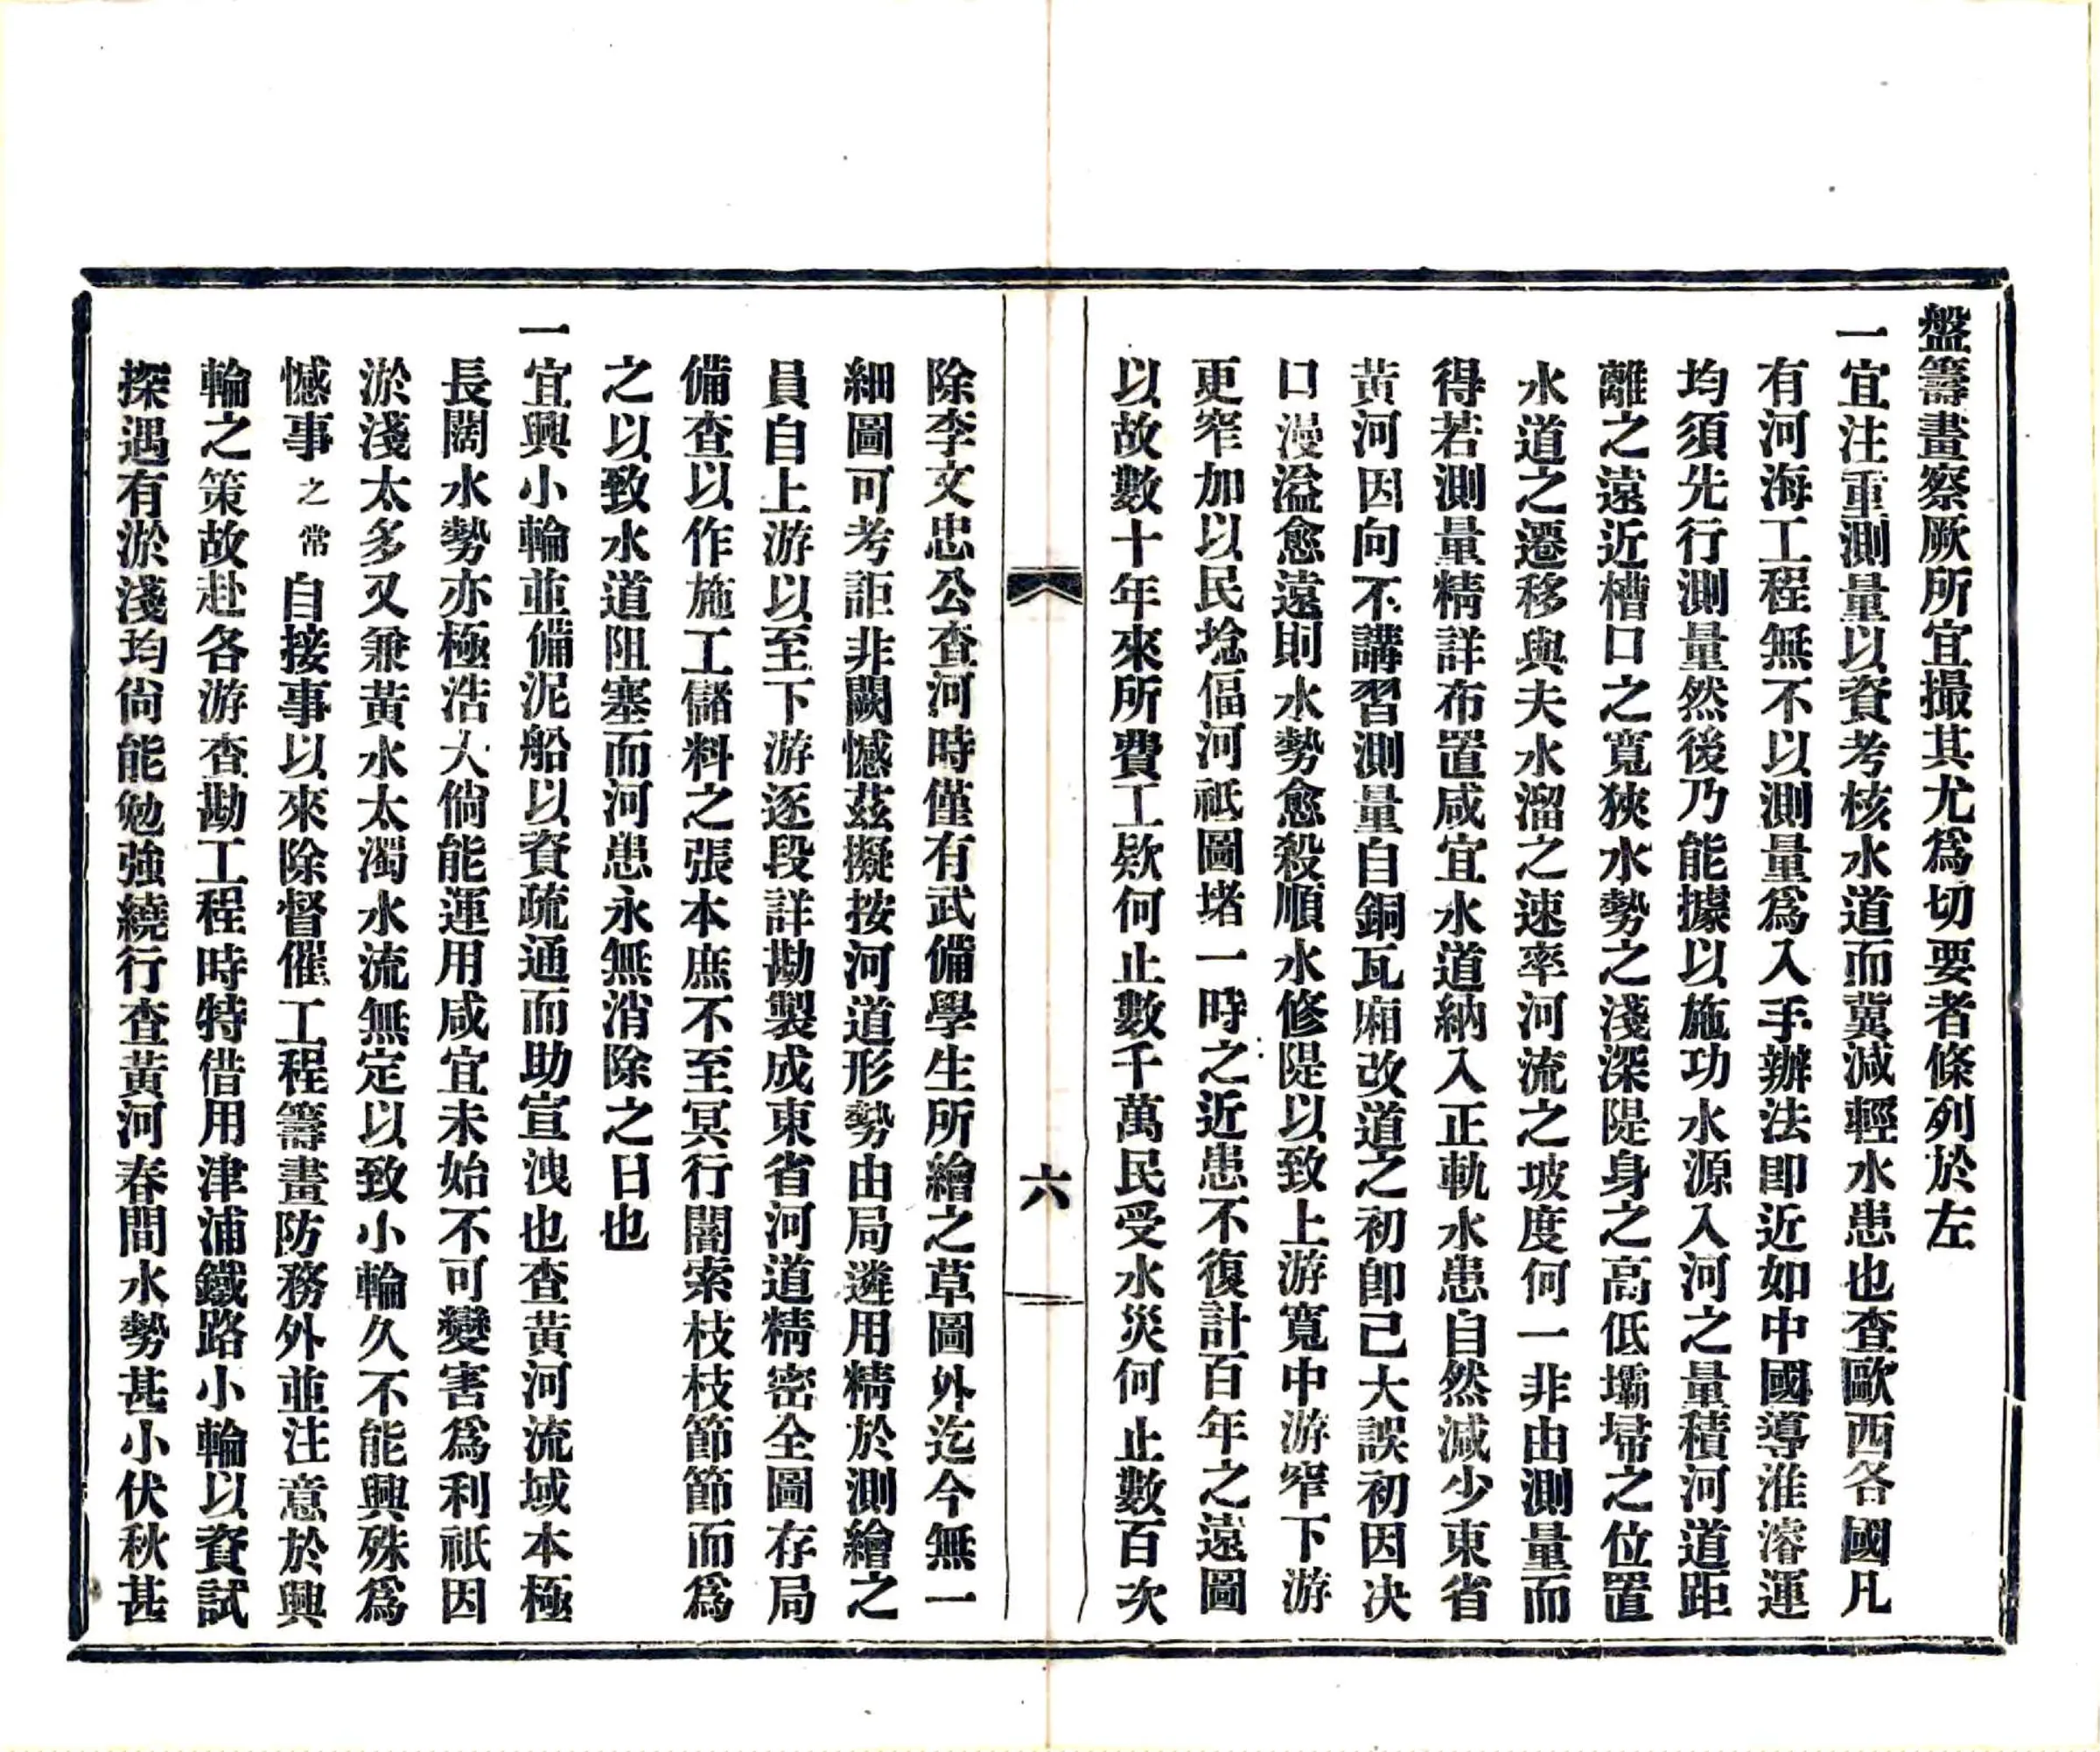 盤籌畫察厥所宜撮其尤爲切要者條列於左
一宜注重測量以資考核水道而冀減輕水患也查歐西各國凡
有河海工程無不以測量爲入手辦法卽近如中國導淮濬運
均須先行測量然後乃能據以施功水源入河之量積河道距
離之遠近槽口之寬狹水勢之淺深隄身之高低壩埽之位置
水道之遷移與夫水溜之速率河流之坡度何一非由測量而
得若測量精詳布置咸宜水道納入正軌水患自然減少東省
黃河因向不講習測量自銅瓦廂改道之初卽已大誤初因決
口漫溢愈遠則水勢愈殺順水修隄以致上游寬中游窄下游
更窄加以民埝偪河祇圖堵一時之近患不復計百年之遠圖
以故數十年來所費工欵何止數千萬民受水災何止數百次
六
除李文忠公查河時僅有武備學生所繪之草圖外迄今無一
細圖可考詎非闕憾茲擬按河道形勢由局遴用精於測繪之
員自上游以至下游逐段詳勘製成東省河道精密全圖存局
備查以作施工儲料之張本庶不至冥行闇索枝枝節節而爲
之以致水道阻塞而河患永無消除之日也
一宜興小輪並備泥船以資疏通而助宣洩也查黃河流域本極
長闊水勢亦極浩大倘能運用咸宜未始不可變害爲利祇因
淤淺太多又兼黃水太濁水流無定以致小輪久不能興殊爲
憾事之常自接事以來除督催工程籌畫防務外並注意於興
輪之策故赴各游查勘工程時特借用津浦鐵路小輪以資試
探遇有淤淺均尙能勉強繞行查黃河春間水勢甚小伏秋甚